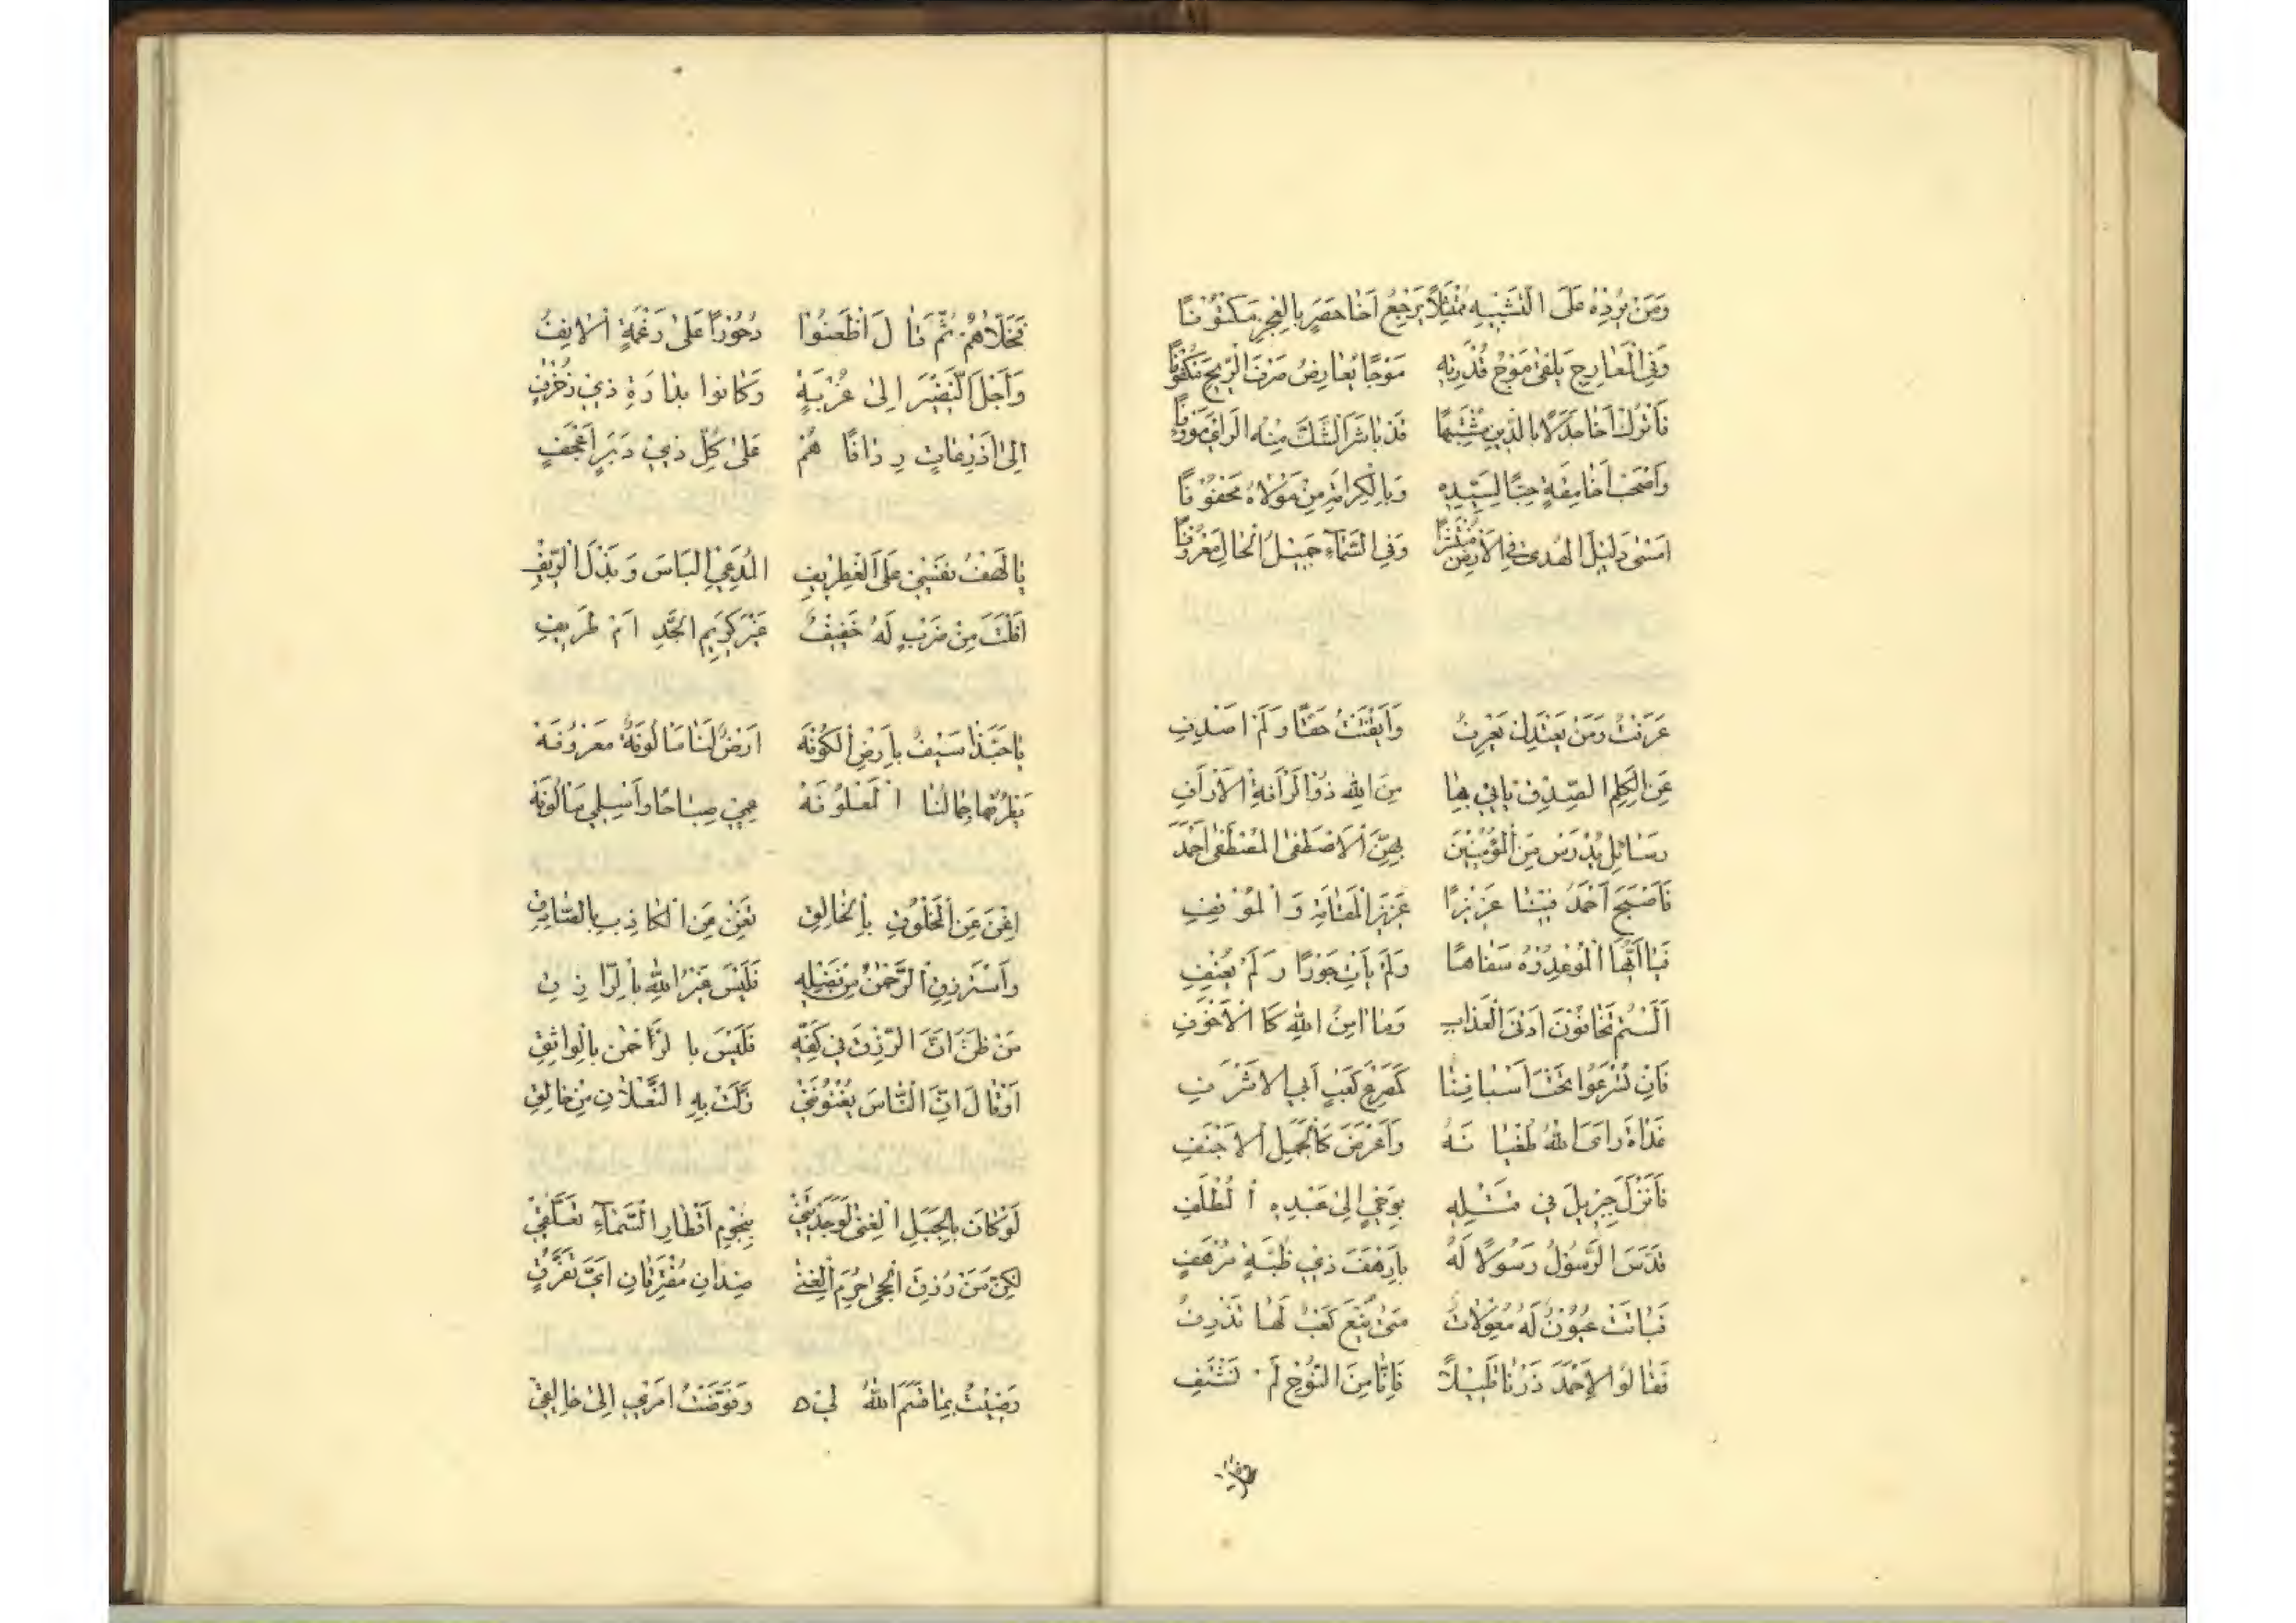 وَمَنْ يُرِدْهُ عَلَى التَّشْبِيهِ مُمْتَثِلًا يَرْجِعْ اَخَا حَصَرٍ بِالْعَجْزِ مَكْتُوفًا
وَفِي الْمَعَارِجِ يَلْقَى مَوْجُ قُدْرَتِهِ مَوْجًا يُعَارِضُ صَرْفَ الرِّيحِ مَكْفُوفًا
فَاتْرُكْ اَخَا جَدَلٍ بِالدِّينِ مُشْتَبِهًا قَدْ بَاشَرَ الشَّكَّ مِنْهُ الرَّاْيُ مَؤُوفًا
وَاصْحَبْ اَخَا مِقَةٍ حِبًّا لِسَيِّدِهِ وَبِالْكَرَامَةِ مِنْ مَوْلَاهُ مَحْفُوفًا
اَمْسَى دَلِيلَ الْهُدَى فِي الْاَرْضِ مُنْتَشِرًا وَفِي السَّمَآءِ جَمِيلَ الْحَالِ مَعْرُوفًا
عَرَفْتُ وَمَنْ يَعْتَدِلْ يَعْرِفُ وَاَيْقَنْتُ حَقًّا وَلَمْ اَصْدِفِ
عَنِ الْكَلِمِ الصِّدْقِ يَاتِي بِهَا مِنَ اللهِ ذُو الرَّأْفَةِ الْاَرْاَفِ
رَسَائِلُ يُدْرَسْنَ مِنَ الْمُؤْمِنِينَ بِهِنَّ الْاَصْطَفَى الْمُصْطَفَى اَحْمَدَ
فَاَصْبَحَ اَحْمَدُ فِينَا عَزِيزًا عَزِيزَ الْمَقَامَةِ وَالْمَوْقِفِ
فَيَا اَيُّهَا الْمُوعِدُوْهُ سَفَاهًا وَلَمْ يَاْتِ جَوْرًا وَلَمْ يَعْنُفِ
اَلَسْتُمْ تَخَافُونَ اَدْنَى الْعَذَابِ وَمَا اٰمِنُ اللهِ كَالْاَخْوَفِ
فَاِنْ تُصْرَعُوا تَحْتَ اَسْيَافِنَا كَمَصْرَعِ كَعْبٍ اَبِي الْاَشْرَفِ
غَدَاةَ رَاَى اللهُ طُغْيَانَهُ وَاَعْرَضَ كَالْجَمَلِ الْاَجْنَفِ
فَاَنْزَلَ جِبْرِيلَ فِي قَتْلِهِ بِوَحْيٍ اِلَى عَبْدِهِ الْمُلْطَفِ
فَدَسَّ الرَّسُولُ رَسُولًا لَهُ بِاَرْهَفَ ذِي ظُبَةٍ مُرْهَفِ
فَبَاتَتْ عُيُونٌ لَهُ مُعْوِلَاتٌ مَتَى يُنْعَ كَعْبٌ لَهَا تَذْرِفُ
فَقَالُوا لِاَحْمَدَ ذَرْنَا قَلِيلًا فَاِنَّا مِنَ النَّوْحِ لَمْ نَشْتَفِ
فَخَلَّاهُمْ ثُمَّ قَالَ اظْعَنُوا دُحُورًا عَلَى رَغْمَةِ الْاٰنِفِ
وَاَجْلَى النَّضِيرَ اِلَى غُرْبَةٍ وَكَانُوا بِدَارَةِ ذِي زُخْرُفٍ
اِلَى اَذْرِعَاتٍ رِدَافًا هُمْ عَلَى كُلِّ ذِي دَبَرٍ اَعْجَفٍ
يَا لَهْفَ نَفْسِي عَلَى الْغِطْرِيفِ الْمُدَّعِي الْبَاسَ وَبَذْلَ الرِّيفِ
اَفْلَتَ مِنْ ضَرْبٍ لَهُ خَفِيفُ غَيْرَ كَرِيمِ الْجَدِّ اَمْ طَرِيفِ
يَا حَبَّذَا سَيْفٌ بِاَرْضِ الْكُوفَهْ اَرْضٌ لَنَا مَالُوفَةٌ مَعْرُوفَهْ
يَطْرُقُهَا جِمَالُنَا الْمَعْلُوفَهْ عِمِي صَبَاحًا وَاَسْلِمِي مَالُوفَهْ
اِغْنَ عَنِ الْمَخْلُوقِ بِالْخَالِقِ تَغْنَ عَنِ الْكَاذِبِ بِالصَّادِقِ
وَاسْتَرْزِقِ الرَّحْمٰنَ مِنْ فَضْلِهِ فَلَيْسَ غَيْرُ اللهِ بِالرَّازِقِ
مَنْ ظَنَّ اَنَّ الرِّزْقَ فِي كَفِّهِ فَلَيْسَ بِالرَّحْمٰنِ بِالْوَاثِقِ
اَوْ قَالَ اِنَّ النَّاسَ يُغْنُونَنِي زَلَّتْ بِهِ النَّعْلَانِ مِنْ حَالِقِ
لَوْ كَانَ بِالْحِيَلِ الْغِنَى لَوَجَدْتَنِي بِنُجُومِ اَقْطَارِ السَّمَآءِ تَعَلُّقِي
لٰكِنَّ مَنْ رُزِقَ الْحِجَى حُرِمَ الْغِنَى ضِدَّانِ مُفْتَرِقَانِ اَيَّ تَفَرُّقٍ
رَضِيتُ بِمَا قَسَمَ اللهُ لِي وَفَوَّضْتُ اَمْرِي اِلَى خَالِقِي